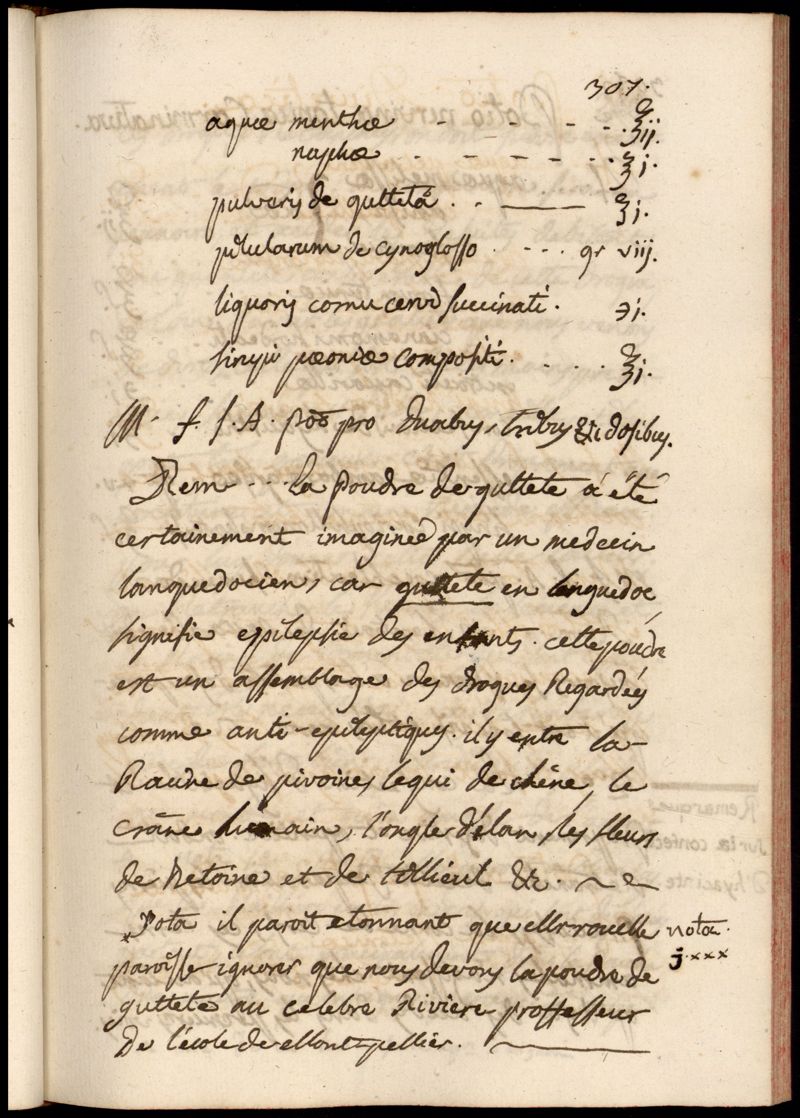 307.
aquæ menthæ - - - - ℥ij.
naphæ . - - - - . . ℥j.
pulveris de guttetâ . . —— ʒj.
pilularum de cynoglosso . - - - gr viij.
liquoris cornu cervi succinati . ℈j.
sirupi pæoniæ compositi . . . . ℥j.
M. f. s. A. pōō pro duabus, tribus dosibus.
Rem - . . La poudre de guttete a été
certainement imagineé par un medecin
languedocien, car guttete en languedoc
signifie epilepsie des enfants. cette poudre
est un assemblage des drogues Regardeés
comme anti-epileptiques. il y entre la
Racine de pivoine, le gui de chéne, le
crâne humain, l'ongle d'élan, les fleurs
de Betoine et de tillieul &c.
Nota il paroit etonnant que Mr rouelle
paroisse ignorer que nous devons la poudre de
guttete au celebre Riviere proffesseur
De l'école de Montpellier.
nota.
j.xxx